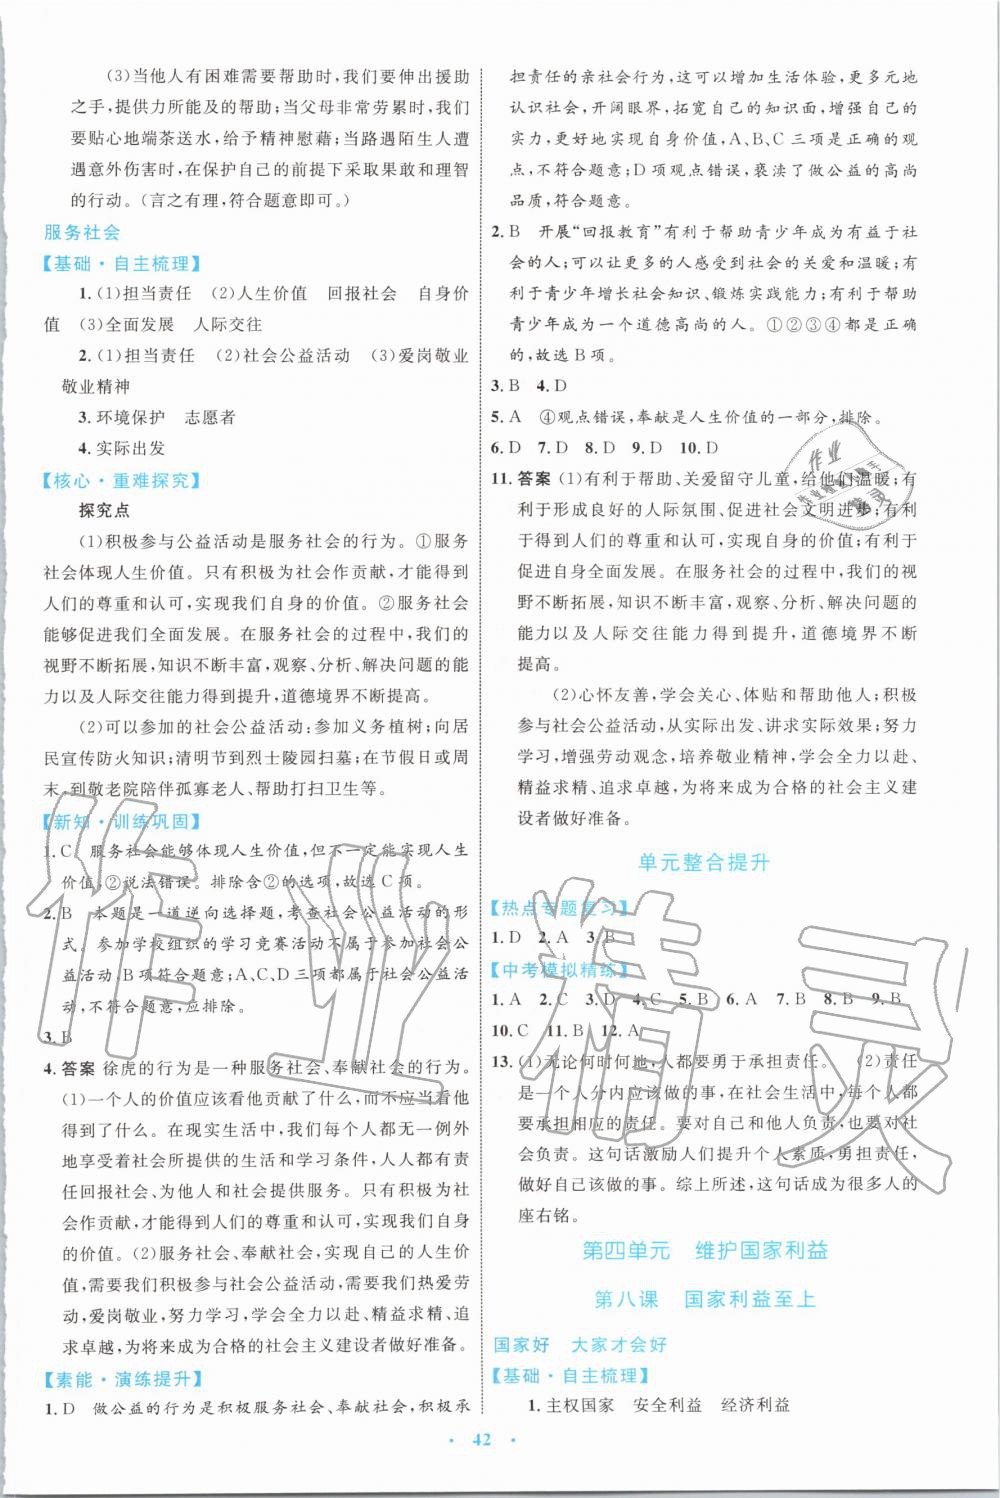 (3)当他人有困难需要帮助时,我们要伸出援助
之手,提供力所能及的帮助;当父母非常劳累时,我们
要贴心地端茶送水,给予精神慰藉;当路遇陌生人遭
遇意外伤害时,在保护自己的前提下采取果敢和理智
的行动。(言之有理,符合题意即可。)
服务社会
【基础·自主梳理】
1.(1)担当责任 (2)人生价值 回报社会 自身价
值 (3)全面发展 人际交往
2.(1)担当责任 (2)社会公益活动 (3)爱岗敬业
敬业精神
3.环境保护 志愿者
4.实际出发
【核心·重难探究】
探究点
(1)积极参与公益活动是服务社会的行为。①服务
社会体现人生价值。只有积极为社会作贡献,才能得到
人们的尊重和认可,实现我们自身的价值。②服务社会
能够促进我们全面发展。在服务社会的过程中,我们的
视野不断拓展,知识不断丰富,观察、分析、解决问题的能
力以及人际交往能力得到提升,道德境界不断提高。
(2)可以参加的社会公益活动:参加义务植树;向居
民宣传防火知识;清明节到烈士陵园扫墓;在节假日或周
末,到敬老院陪伴孤寡老人、帮助打扫卫生等。
【新知·训练巩固】
1.C 服务社会能够体现人生价值,但不一定能实现人生
价值,②说法错误。排除含②的选项,故选C项。
2.B 本题是一道逆向选择题,考查社会公益活动的形
式。参加学校组织的学习竞赛活动不属于参加社会公益
活动,B项符合题意;A、C、D三项都属于社会公益活
动,不符合题意,应排除。
3.B
4.答案 徐虎的行为是一种服务社会、奉献社会的行为。
(1)一个人的价值应该看他贡献了什么,而不应当看他
得到了什么。在现实生活中,我们每个人都无一例外
地享受着社会所提供的生活和学习条件,人人都有责
任回报社会,为他人和社会提供服务。只有积极为社
会作贡献,才能得到人们的尊重和认可,实现我们自身
的价值。(2)服务社会、奉献社会,体现自己的人生价
值,需要我们积极参与社会公益活动,需要我们热爱劳
动,爱岗敬业,努力学习,学会全力以赴、精益求精、追
求卓越,为将来成为合格的社会主义建设者做好准备。
【素能·演练提升】
1.D 做公益的行为是积极服务社会、奉献社会,积极承
担责任的亲社会行为,这可以增加生活体验,更多元地
认识社会,开阔眼界,拓宽自己的知识面,增强自己的
实力,更好地实现自身价值,A、B、C三项是正确的观
点,不符合题意;D项观点错误,亵渎了做公益的高尚
品质,符合题意。
2.B 开展“回报教育”有利于帮助青少年成为有益于社
会的人;可以让更多的人感受到社会的关爱和温暖;有
利于青少年增长社会知识、锻炼实践能力;有利于帮助
青少年成为一个道德高尚的人。①②③④都是正确
的,故选B项。
3.B 4.D
5.A ④观点错误,奉献是人生价值的一部分,排除。
6.D 7.D 8.D 9.D 10.D
11.答案 (1)有利于帮助、关爱留守儿童,给他们温暖;有
利于形成良好的人际氛围、促进社会文明进步;有
利于得到人们的尊重和认可,实现自身的价值;有利于
促进自身全面发展。在服务社会的过程中,我们的视
野不断拓展,知识不断丰富,观察、分析、解决问题的
能力以及人际交往能力得到提升,道德境界不断
提高。
(2)心怀友善,学会关心、体贴和帮助他人;积极
参与社会公益活动,从实际出发、讲求实际效果;努力
学习,增强劳动观念,培养敬业精神,学会全力以赴、
精益求精、追求卓越,为将来成为合格的社会主义建
设者做好准备。
单元整合提升
【热点专题复习】
1.D 2.A 3.B
【中考模拟精练】
1.A 2.C 3.D 4.C 5.B 6.A 7.B 8.B 9.B
10.C 11.B 12.A
13.(1)无论何时何地,人都要勇于承担责任。 (2)责任
是一个人分内应该做的事,在社会生活中,每个人都
要承担相应的责任。要对自己和他人负责,也要对社
会负责。这句话激励人们提升个人素质,勇担责任,
做好自己该做的事。综上所述,这句话成为很多人的
座右铭。
第四单元 维护国家利益
第八课 国家利益至上
国家好 大家才会好
【基础·自主梳理】
1.主权国家 安全利益 经济利益
· 42 ·
作业精灵